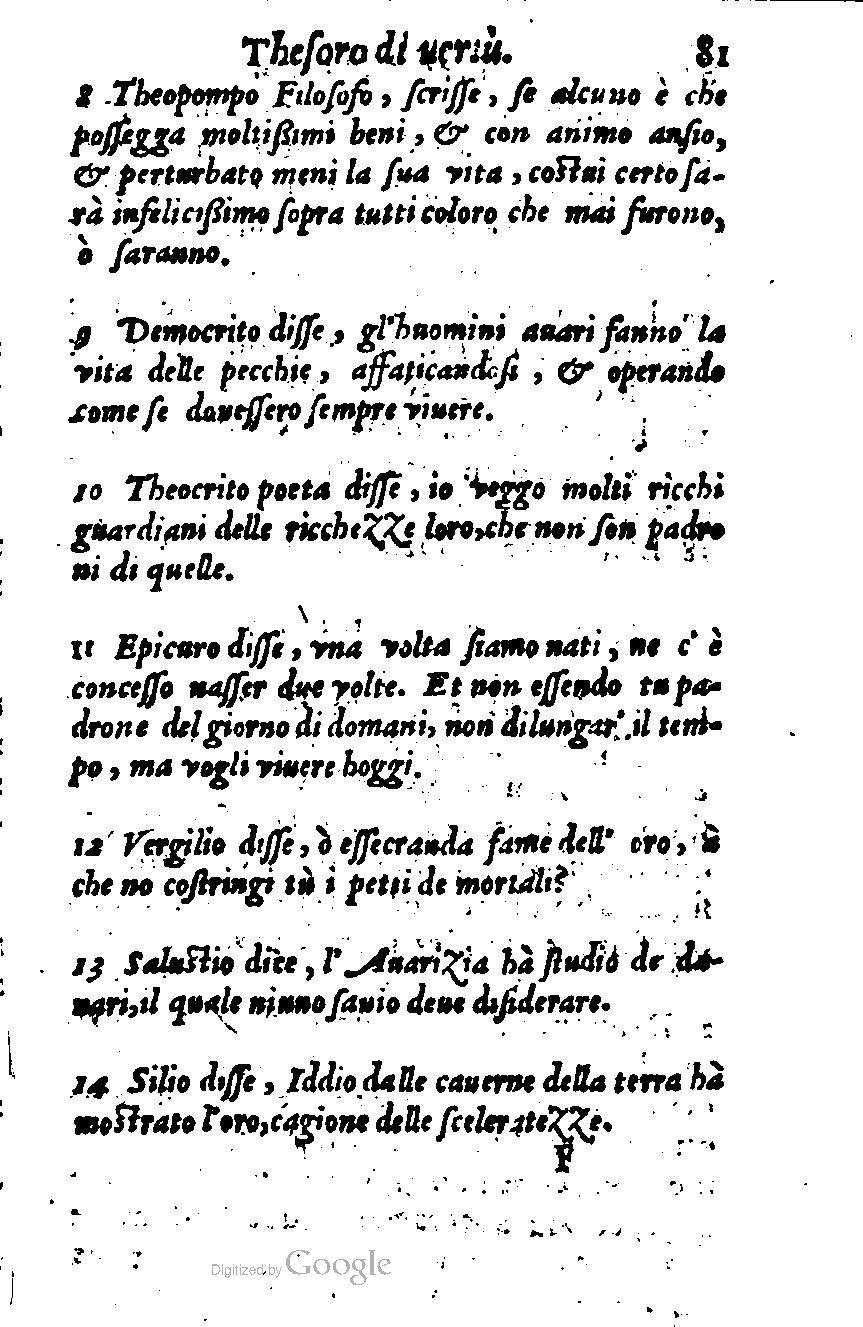 Theſoro di uertù. 81
8 Theopompo Filoſofo, ſcriſſe, ſe alcuno è che
poſſegga moltißimi beni, & con animo anſio,
& perturbato meni la ſua vita, coſtui certo ſa-
rà infelicißimo ſopra tutti coloro che mai furono,
ò ſaranno.
9 Democrito diſſe, gl'huomini auari fanno la
vita delle pecchie, affaticandoſi, & operando
come ſe doueſſero ſempre viuere.
10 Theocrito poeta diſſe, io veggo molti ricchi
guardiani delle ricchezze loro, che non ſon padro
ni di quelle.
11 Epicuro diſſe, vna volta ſiamo nati, ne c'è
conceſſo naſſer due volte. Et non eſſendo tu pa-
drone del giorno di domani, non dilungar' il tem-
po, ma vogli viuere hoggi.
12 Vergilio diſſe, ò eſſecranda fame dell' oro, à
che no coſtringi tù i petti de mortali?
13 Saluſtio dice, l' Auarizia hà ſtudio de da-
nari, il quale niuno ſauio deue diſiderare.
14 Silio diſſe, Iddio dalle cauerne della terra hà
moſtrato l'oro, cagione delle ſceleratezze.
F
Digitized by Google